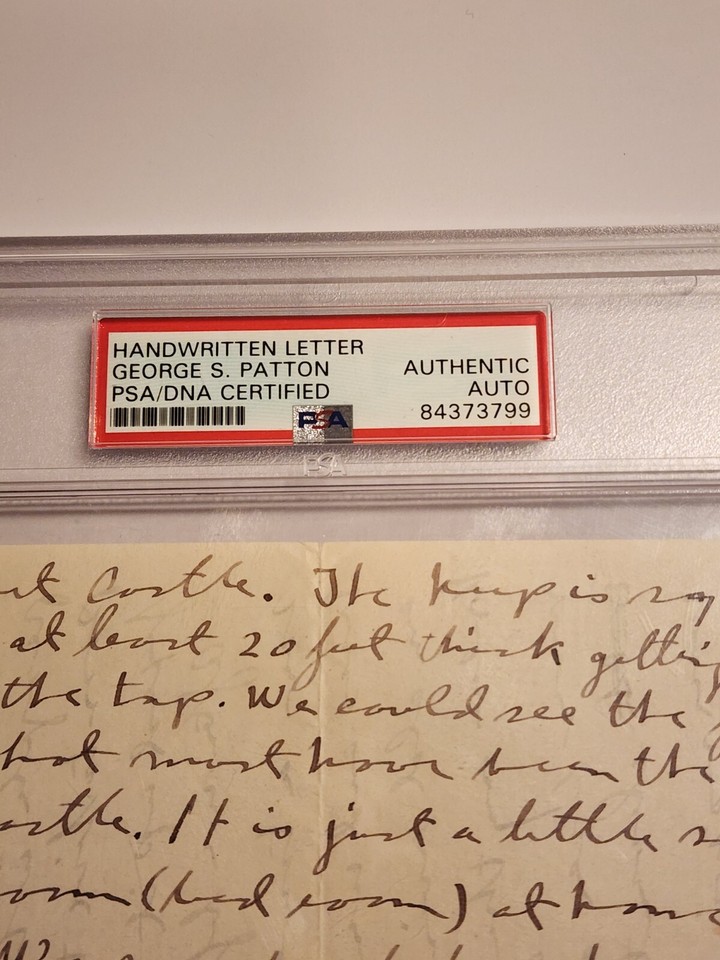 HANDWRITTEN LETTER
GEORGE S. PATTON
PSA/DNA CERTIFIED
AUTHENTIC
AUTO
84373799
PSA
PSA
Castle. The keep is
at least 20 feet thick getting
the top. We could see the
hat must have been the
astle. It is just a little
oom (bed room) at home